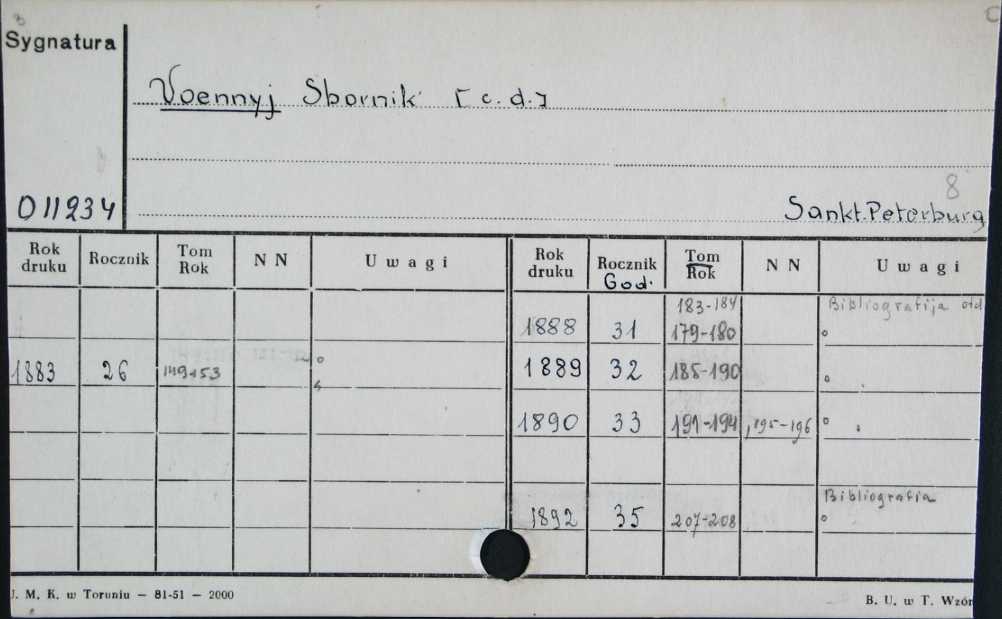 Sygnatura
Voennyj Sbornik [c.d.]
8
011234
Sankt.Peterburg
Rok druku Rocznik Tom Rok N N Uwagi Rok druku Rocznik God. Tom Rok N N Uwagi
183-184 Bibliografija otd
1888 31 179-180
1883 26 149,153 1889 32 185-190
1890 33 191-194, 195-196
Bibliografia
1892 35 207-208
J. M. K. w Toruniu — 81-51 — 2000
B. U. w T. Wzór